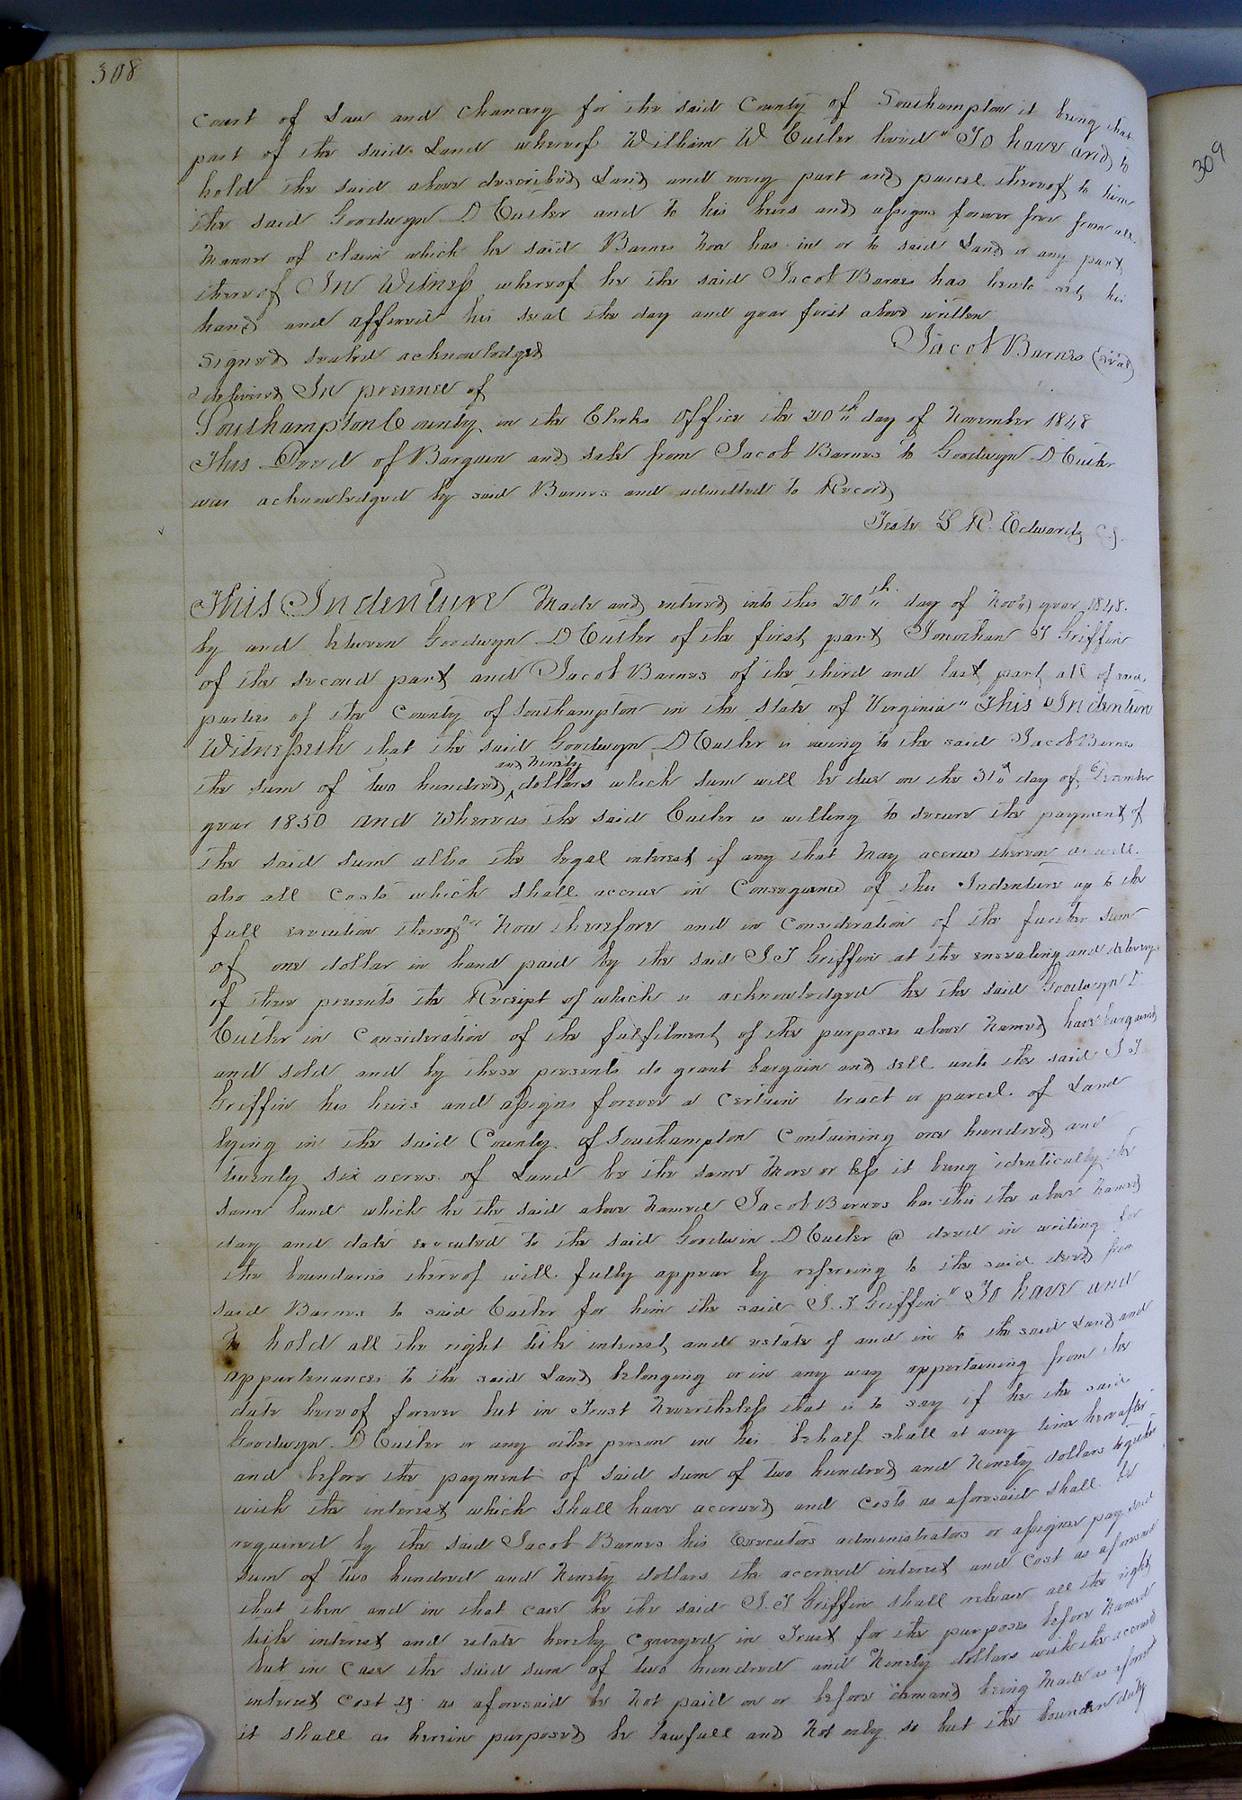 308
Court of Law and Chancery for the said County of Southampton it being that
part of the said Land whereof William W Cutler lived" To have and to
hold the said above described Land and every part and parcel thereof to him
the said Goodwyn D Cutler and to his heirs and assigns forever free from all
Manner of claim which he said Barnes Now has in or to said Land or any part
thereof In Witness whereof he the said Jacob Barnes has hereto set his
hand and affixed his seal the day and year first above written
Signed sealed acknowledged Jacob Barnes (seal)
& delivered In presence of
Southampton County in the Clerks Office the 20th day of November 1848
This Deed of Bargain and sale from Jacob Barnes to Goodwyn D Cutler
was acknowledged by said Barnes and admitted to Record
Teste L R. Edwards C.
309
This Indenture Made and entered into this 20th day of Novr year 1848.
by and between Goodwyn D Cutler of the first part Jonathan T Griffin
of the second part and Jacob Barnes of the third and last part all of said
parties of the County of Southampton in the State of Virginia" This Indenture
Witnesseth that the said Goodwyn D Cutler is owing to the said Jacob Barnes
and Ninety
the sum of two hundred ^ dollars which sum will be due on the 31st day of December
year 1850 and Whereas the said Cutler is willing to secure the payment of
the said sum also the legal interest if any that May accrue thereon as well
also all Costs which shall accrue in Consequence of this Indenture up to the
full execution thereof" Now therefore and in Consideration of the further sum
of one dollar in hand paid by the said J T Griffin at the ensealing and delivery
of these presents the Receipt of which is acknowledged he the said Goodwyn D
Cutler in Consideration of the fulfilment of the purposes above Named have bargained
and sold and by these presents do grant bargain and sell unto the said J T
Griffin his heirs and assigns forever a Certain tract or parcel of Land
lying in the said County of Southampton Containing one hundred and
twenty six acres of Land be the same More or less it being identically the
same land which he the said above Named Jacob Barnes has this the above Named
day and date executed to the said Goodwin D Cutler @ deed in writing for
the boundaries thereof will fully appear by referring to the said deed from
said Barnes to said Cutler for him the said J. T. Griffin" To have and
to hold all the right title interest and estate of and in to the said Land and
appurtenances to the said Land belonging or in any way appertaining from the
date hereof forever but in Trust Nevertheless that is to say if he the said
Goodwyn D Cutler or any other person in his behalf shall at any time hereafter
and before the payment of said sum of two hundred and Ninety dollars together
with the interest which shall have accrued and Costs as aforesaid shall be
required by the said Jacob Barnes his Executors administrators or assignee pay said
sum of two hundred and Ninety dollars the accrued interest and Cost as aforesaid
that then and in that case he the said J. T Griffin shall release all the right
title interest and estate hereby Conveyed in Trust for the purposes before Named
but in Case the said sum of two hundred and Ninety dollars with the accrued
interest Cost &c. as aforesaid be Not paid on or before demand being Made as afores
it shall as herein purposed be lawfull and Not only so but the bounden duty